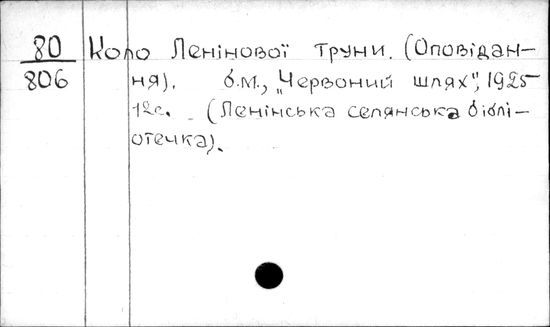 80 Коло Ленінової труни. (Оповідан-
806 ня). б.м., „Червоний шлях", 1925
12с. (Ленінська селянська біблі-
отечка).